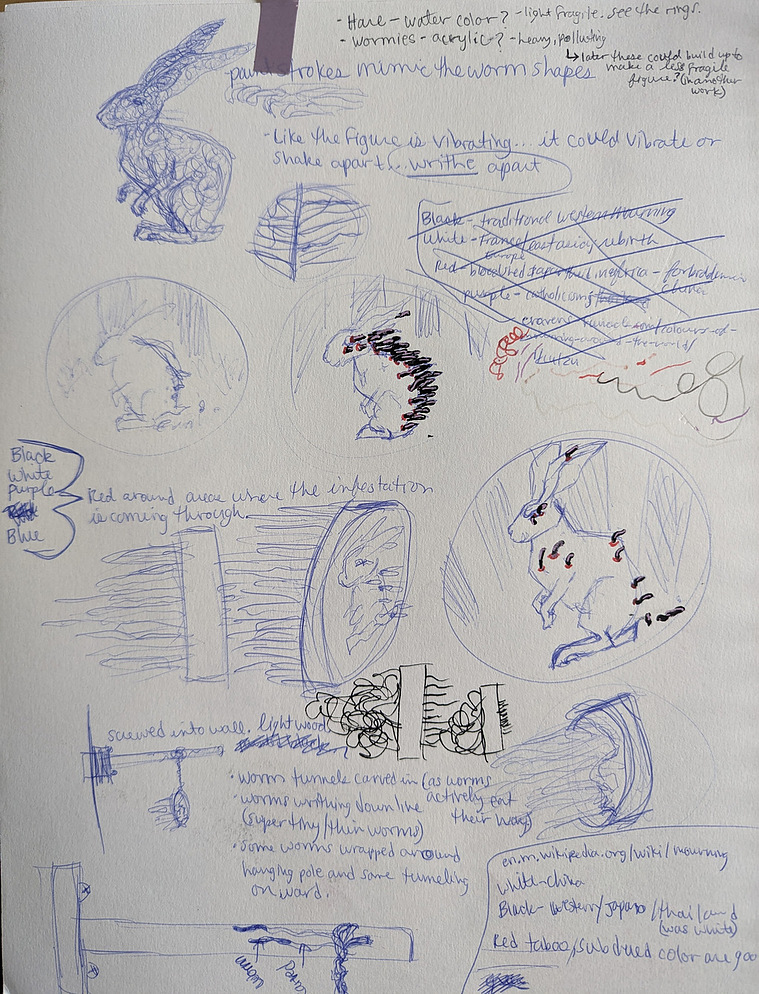 - Hare - water color? - light fragile. see the rings.
- wormies - acrylic? - heavy, polluting
↳ later these could build up to
make a less fragile
figure? (in another
work)
strokes mimic the worm shapes
- Like the figure is vibrating... it could vibrate or
shake apart... writhe apart
Black - traditional western mourning
White - France/east asia/rebirth
Europe
Red - blood/red south africa - forbidden in
China
purple - catholicism
Black
White
purple
Blue
Red around areas where the infestation
is coming through.
screwed into wall. light wood
• worm tunnels carved in (as worms
actively eat
their way)
• worms writhing down line
(super tiny/thin worms)
• some worms wrapped around
hanging pole and some tunneling
on ward.
worm
carved
en.m.wikipedia.org/wiki/mourning
White - china
Black - western/japan/thailand
(was white)
Red taboo, subdued color are goo